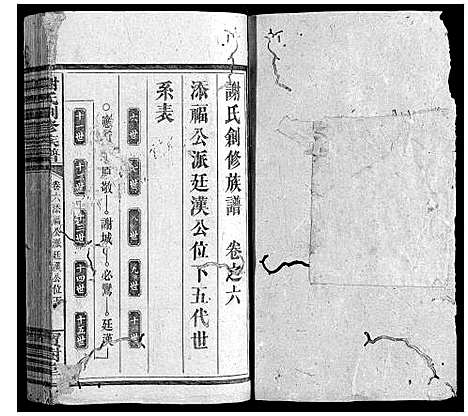 謝氏創修族譜 卷之六
添福公派廷漢公位下五代世
系表
六世 七世 八世 九世 十世
原敬 謝城 必鸞 廷漢
十一世 十二世 十三世 十四世 十五世
謝氏創修族譜 卷六添福公派廷漢公位下
寶樹堂